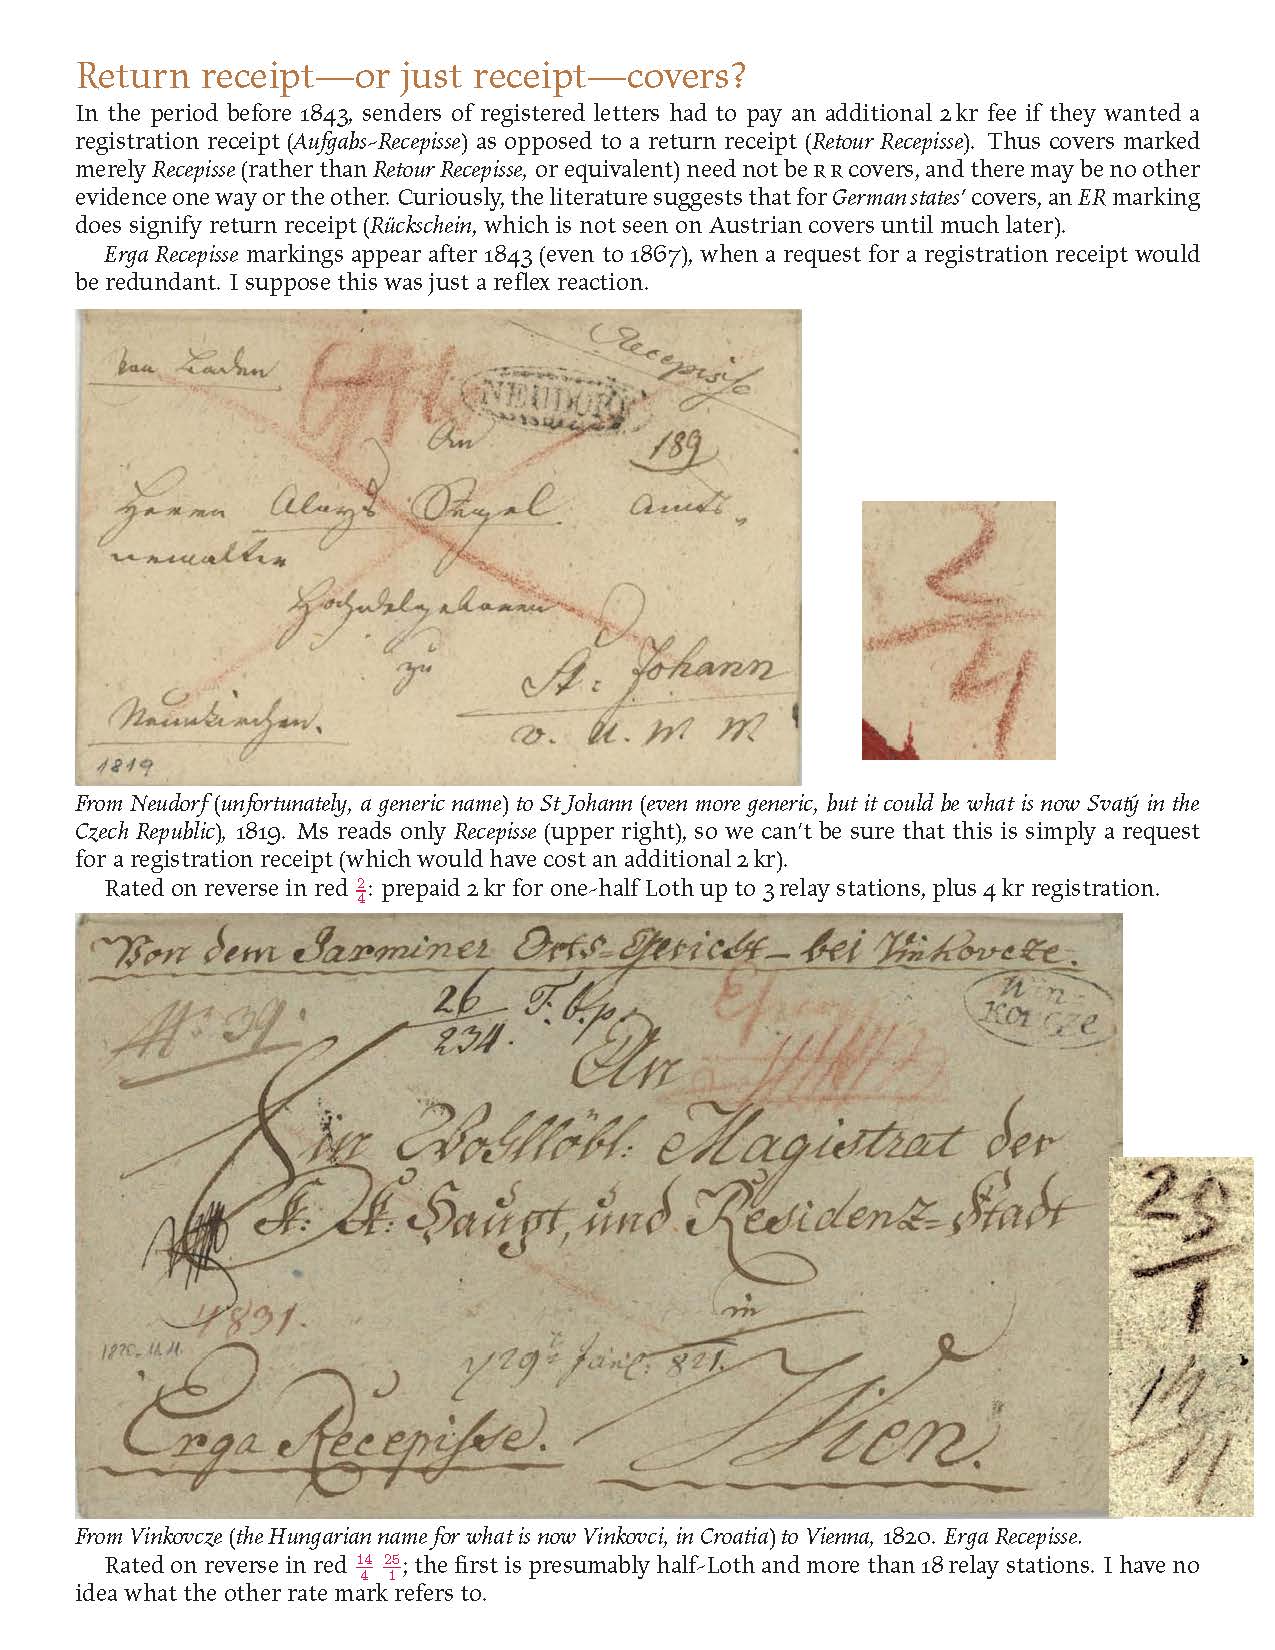 Return receipt—or just receipt—covers?
In the period before 1843, senders of registered letters had to pay an additional 2 kr fee if they wanted a
registration receipt (Aufgabs-Recepisse) as opposed to a return receipt (Retour Recepisse). Thus covers marked
merely Recepisse (rather than Retour Recepisse, or equivalent) need not be RR covers, and there may be no other
evidence one way or the other. Curiously, the literature suggests that for German states' covers, an ER marking
does signify return receipt (Rückschein, which is not seen on Austrian covers until much later).
Erga Recepisse markings appear after 1843 (even to 1867), when a request for a registration receipt would
be redundant. I suppose this was just a reflex reaction.
Von Baden
Recepisse
NEUDORF
An
189
Herrn Aloys Amts
verwalter
Hochedelgebohren
zu
St: Johann
Neunkirchen.
v. U. M M.
1819
2
4
From Neudorf (unfortunately, a generic name) to St Johann (even more generic, but it could be what is now Svatý in the
Czech Republic), 1819. Ms reads only Recepisse (upper right), so we can't be sure that this is simply a request
for a registration receipt (which would have cost an additional 2 kr).
Rated on reverse in red 2/4: prepaid 2 kr for one-half Loth up to 3 relay stations, plus 4 kr registration.
Von dem Jarminer Orts=Gericht – bei Vinkovcze.
Win-
kovcze
No 39.
26
234.
An
Ein Wohllöbl: Magistrat der
K: K: Haupt, und Residenz=Stadt
in
4891.
Erga Recepisse.
Wien.
25
1
14
4
From Vinkovcze (the Hungarian name for what is now Vinkovci, in Croatia) to Vienna, 1820. Erga Recepisse.
Rated on reverse in red 14/4 25/1; the first is presumably half-Loth and more than 18 relay stations. I have no
idea what the other rate mark refers to.